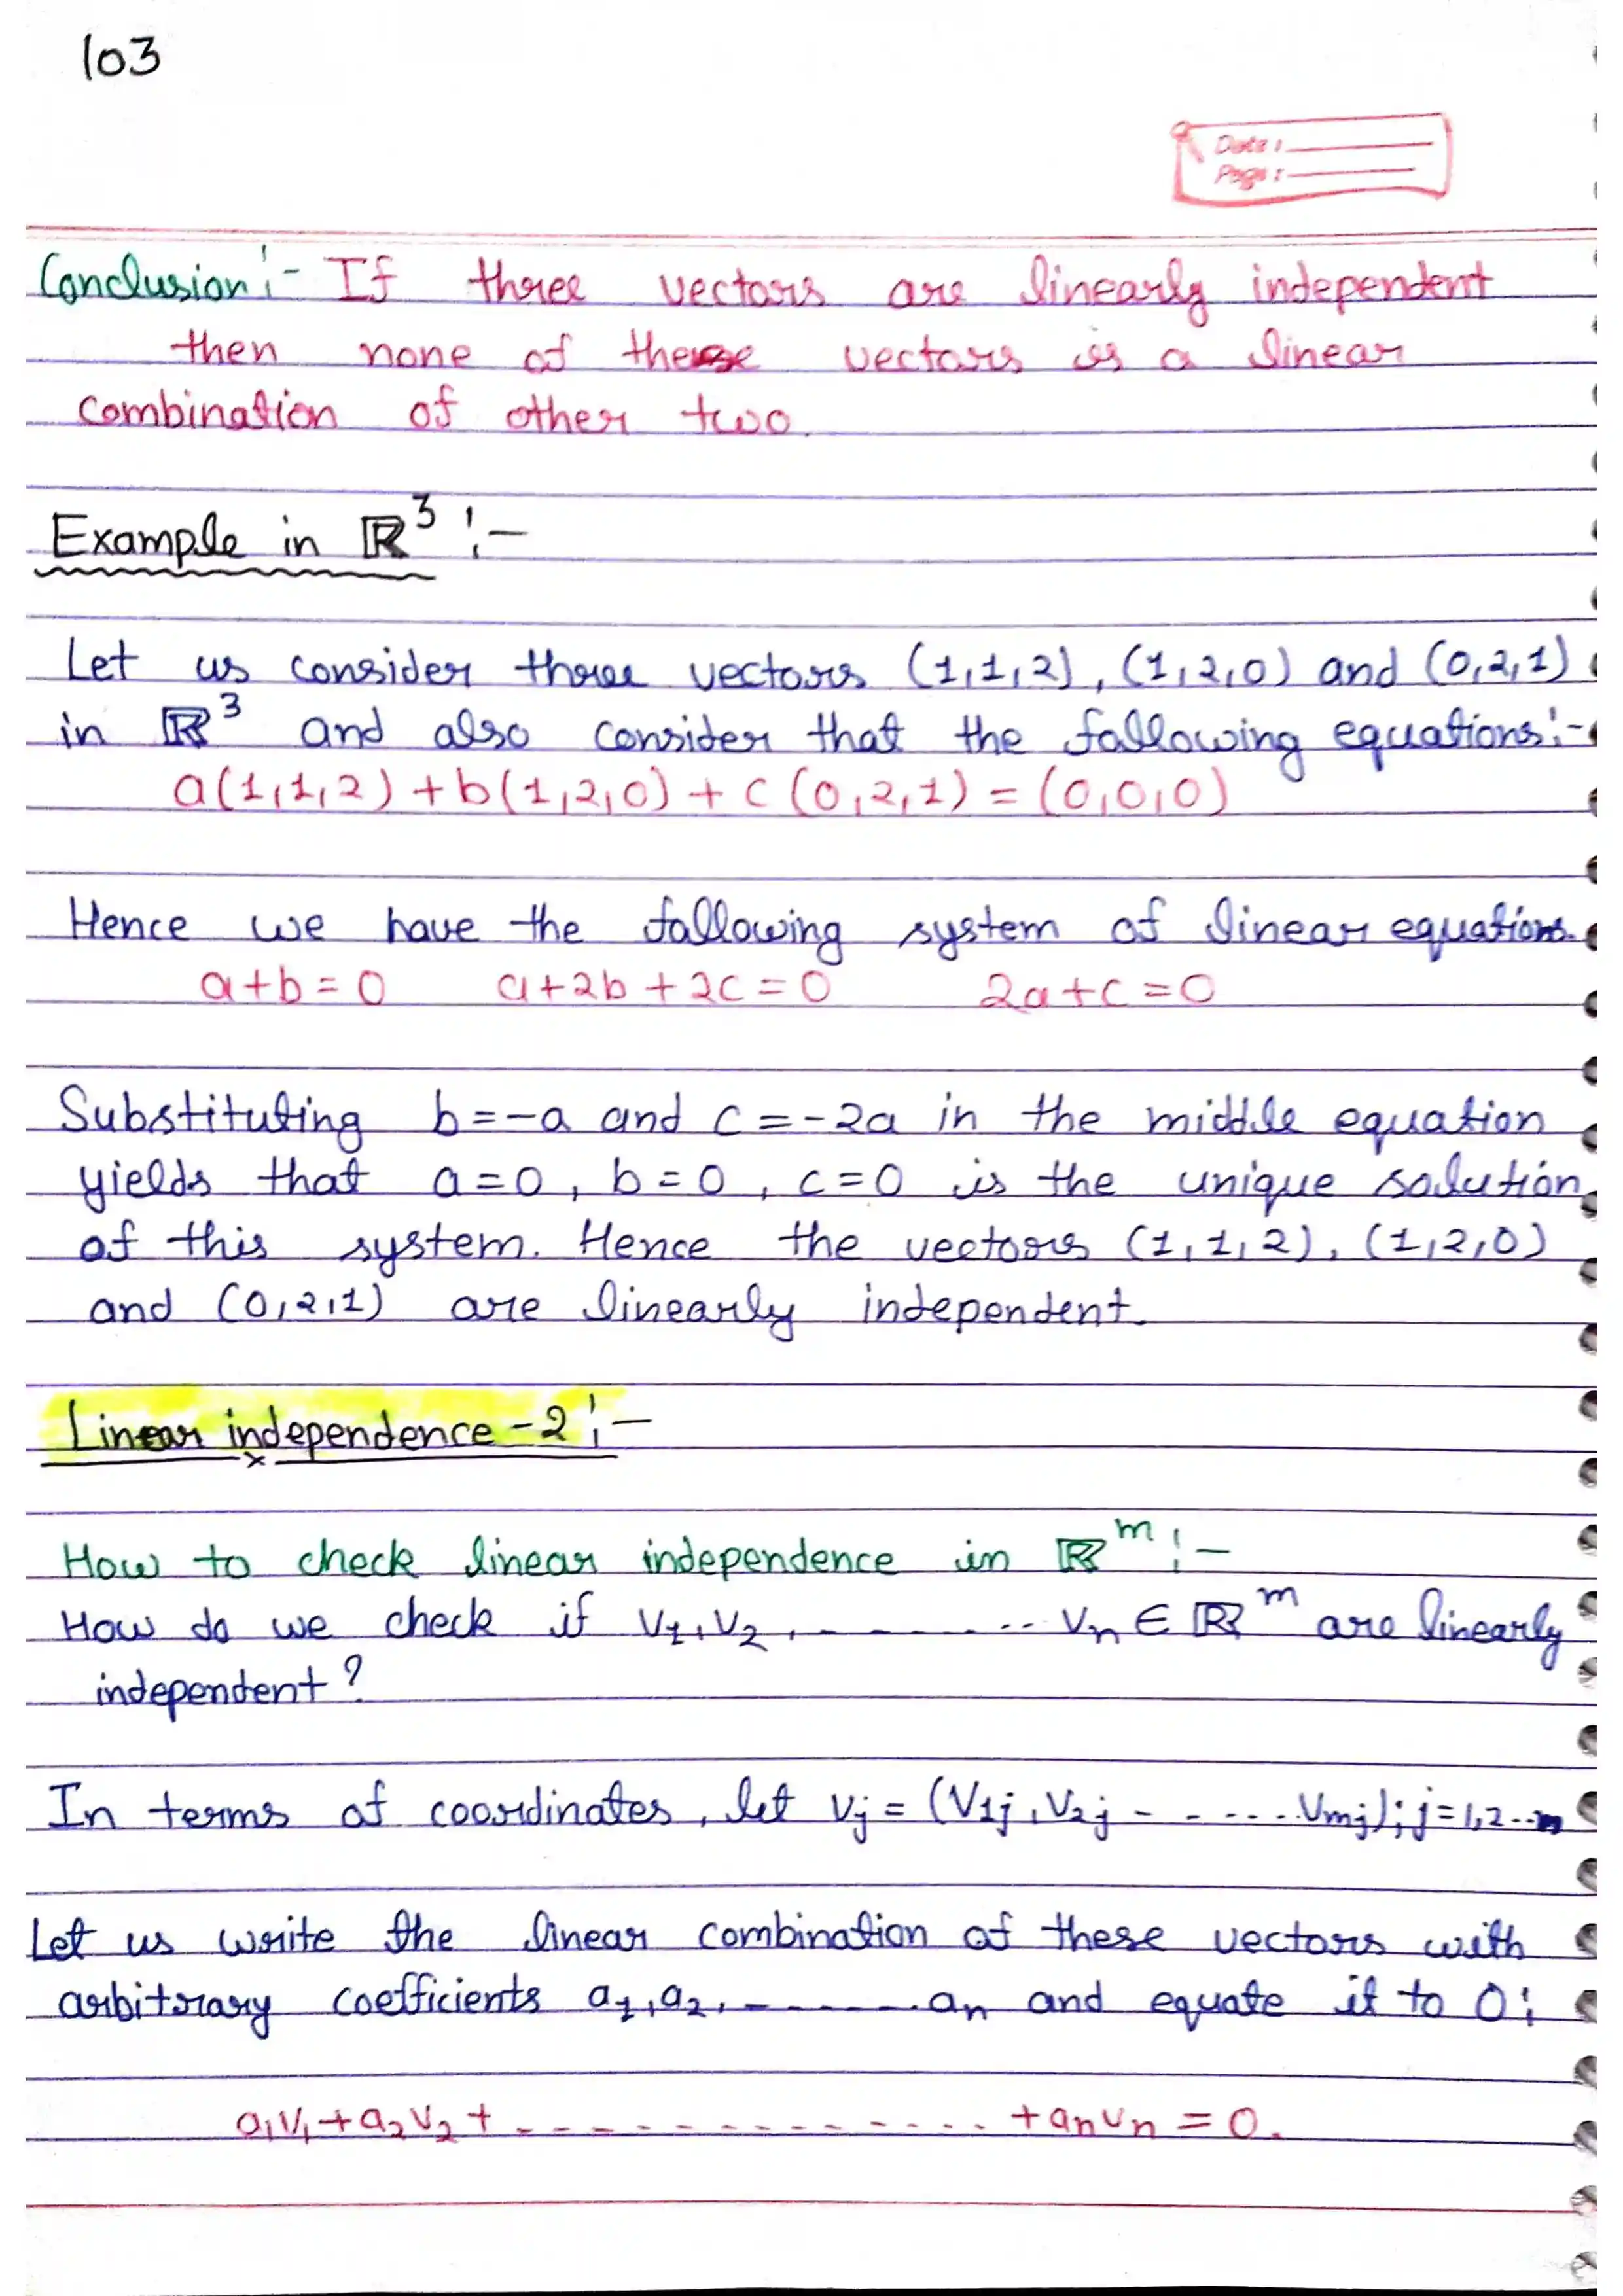 103
Date:
Page:
Conclusion:- If three vectors are linearly independent
then none of these vectors is a linear
combination of other two.
Example in ℝ³ :-
Let us consider three vectors (1,1,2), (1,2,0) and (0,2,1)
in ℝ³ and also consider that the following equations:-
a(1,1,2) + b(1,2,0) + c(0,2,1) = (0,0,0)
Hence we have the following system of linear equations.
a+b=0 a+2b+2c=0 2a+c=0
Substituting b=-a and c=-2a in the middle equation
yields that a=0, b=0, c=0 is the unique solution
of this system. Hence the vectors (1,1,2), (1,2,0)
and (0,2,1) are linearly independent.
Linear independence -2:-
How to check linear independence in ℝᵐ:-
How do we check if v₁,v₂, - - - - - ... vₙ ∈ ℝᵐ are linearly
independent?
In terms of coordinates, let vⱼ = (V₁ⱼ, V₂ⱼ - - - .... Vₘⱼ); j=1,2...n
Let us write the linear combination of these vectors with
arbitrary coefficients a₁,a₂, - - - - - - . aₙ and equate it to 0:
a₁v₁+a₂v₂+ - - - - - - - - - - - - - +aₙvₙ = 0.